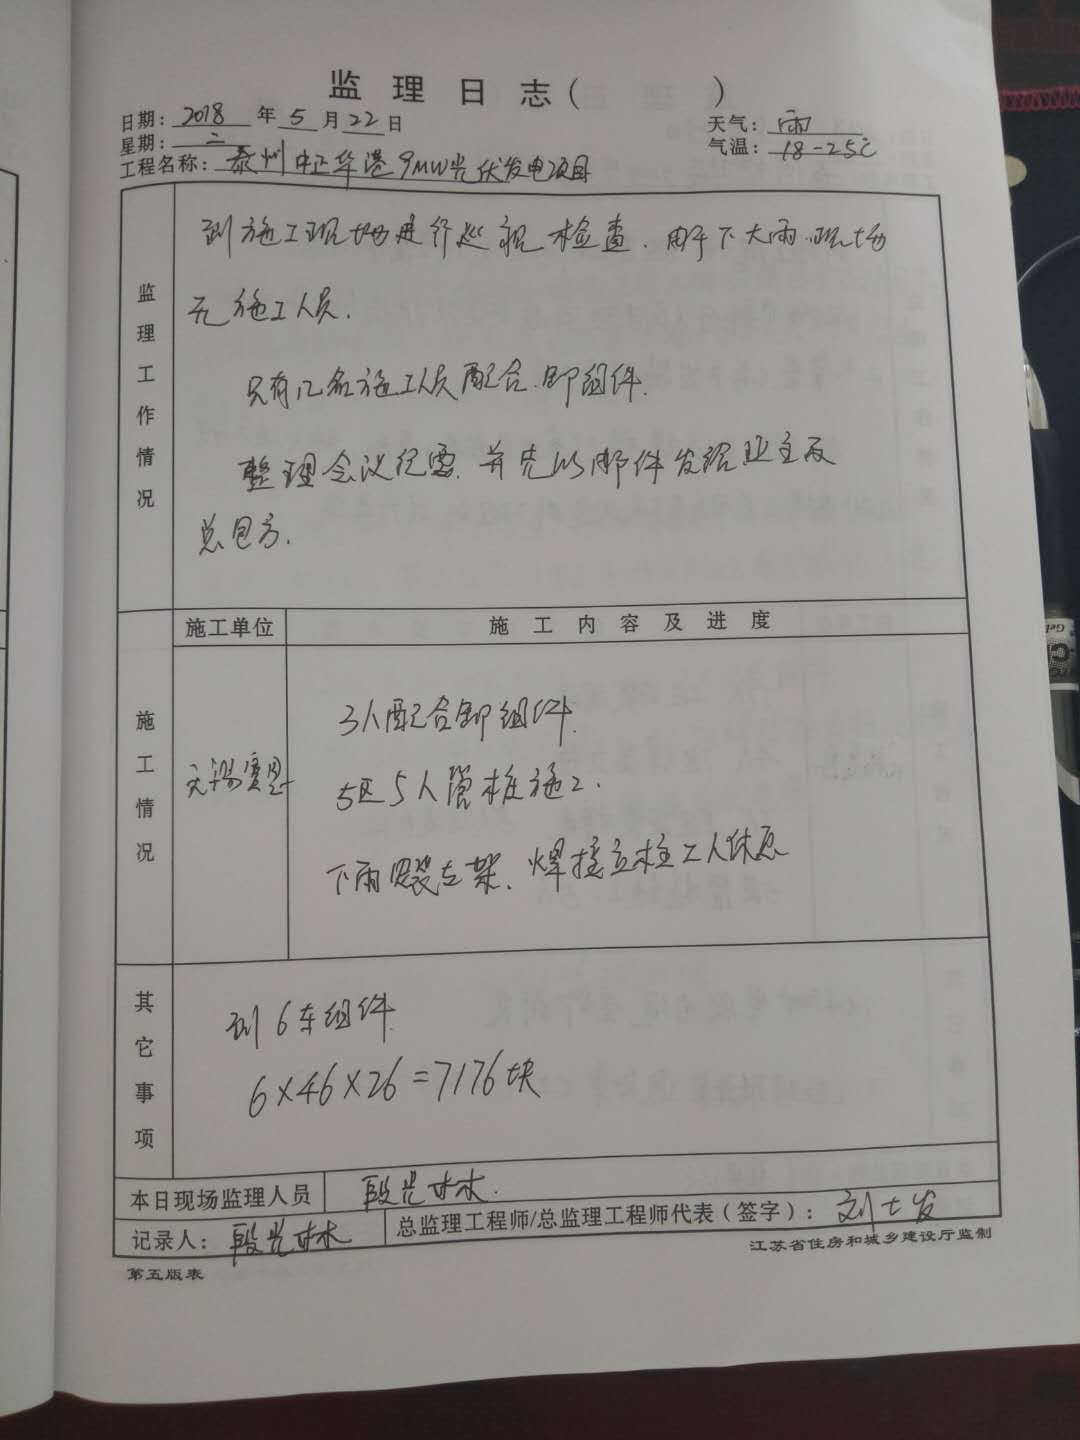 监理日志（ ）
日期：2018年5月22日
天气：雨
星期：二
气温：18-25℃
工程名称：泰州中正华港9MW光伏发电项目
监理工作情况
到施工现场进行巡视检查，由于下大雨，现场
无施工人员．
只有几名施工人员配合卸组件．
整理会议纪要，并先以邮件发给业主及
总包方．
施工单位
施工内容及进度
施工情况
无锡
3人配合卸组件．
5区5人管桩施工．
下雨安装支架、焊接立柱工人休息
其它事项
到6车组件
6×46×26=7176块
本日现场监理人员
段兴林．
记录人：段兴林
总监理工程师/总监理工程师代表（签字）：
江苏省住房和城乡建设厅监制
第五版表